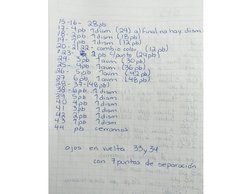 15-16- 28pb
17- 2pb 1dism (24) al final no hay dism
18- 2pb 1dism (18pb)
19- 1pb 1dism (12pb)
20-21/22- cambio color (12pb)
*23 2pb 4punto (24pb)
24- 3pb 1aum (30pb)
25- 4pb 1aum (36pb)
26- 5pb 1aum (42pb)
27- 6pb 1aum (48pb)
28- 37 (48pb)
38- 6pb 1dism
39- 5pb 1dism
40- 4pb 1dism
41- 3pb 1dism
42- 2pb 1dism
43- 1pb 1dism
44 pb cerramos
ojos en vuelta 33y34
con 7puntos de separación